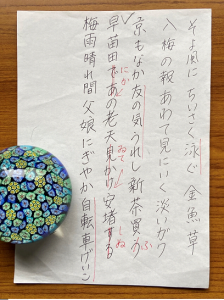 そよ風に ちいさく泳ぐ 金魚草
入梅の報 あわて見にいく 淡いガク
京もなか 友の気うれし 新茶買う
ふ
早苗田 あの老夫見かけ 安堵する
にか
ゐて
しぬ
梅雨晴れ間 父娘にぎやか 自転車げいこ